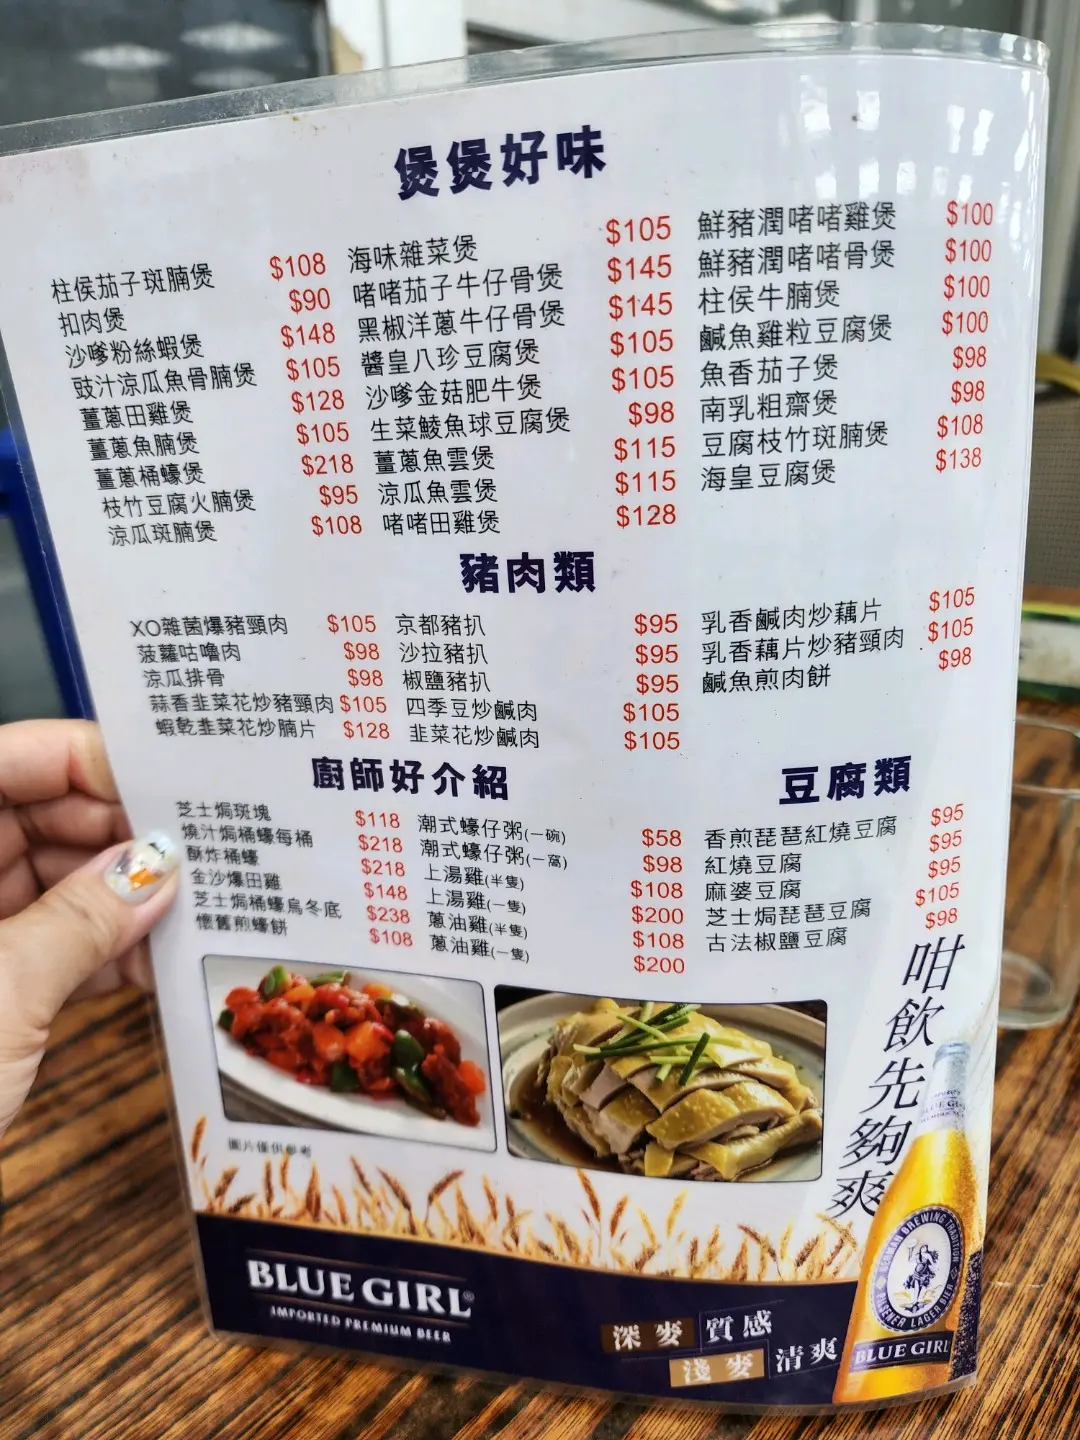 煲煲好味
柱侯茄子斑腩煲 $108
扣肉煲 $90
沙嗲粉絲蝦煲 $148
豉汁涼瓜魚骨腩煲 $105
薑蔥田雞煲 $128
薑蔥魚腩煲 $105
薑蔥桶蠔煲 $218
枝竹豆腐火腩煲 $95
涼瓜斑腩煲 $108
海味雜菜煲 $105
啫啫茄子牛仔骨煲 $145
黑椒洋蔥牛仔骨煲 $145
醬皇八珍豆腐煲 $105
沙嗲金菇肥牛煲 $105
生菜鯪魚球豆腐煲 $98
薑蔥魚雲煲 $115
涼瓜魚雲煲 $115
啫啫田雞煲 $128
鮮豬潤啫啫雞煲 $100
鮮豬潤啫啫骨煲 $100
柱侯牛腩煲 $100
鹹魚雞粒豆腐煲 $100
魚香茄子煲 $98
南乳粗齋煲 $98
豆腐枝竹斑腩煲 $108
海皇豆腐煲 $138
豬肉類
XO雜菌爆豬頸肉 $105
菠蘿咕嚕肉 $98
涼瓜排骨 $98
蒜香韭菜花炒豬頸肉 $105
蝦乾韭菜花炒腩片 $128
京都豬扒 $95
沙拉豬扒 $95
椒鹽豬扒 $95
四季豆炒鹹肉 $105
韭菜花炒鹹肉 $105
乳香鹹肉炒藕片 $105
乳香藕片炒豬頸肉 $105
鹹魚煎肉餅 $98
廚師好介紹
芝士焗斑塊 $118
燒汁焗桶蠔每桶 $218
酥炸桶蠔 $218
金沙爆田雞 $148
芝士焗桶蠔烏冬底 $238
懷舊煎蠔餅 $108
潮式蠔仔粥(一碗) $58
潮式蠔仔粥(一窩) $98
上湯雞(半隻) $108
上湯雞(一隻) $200
蔥油雞(半隻) $108
蔥油雞(一隻) $200
豆腐類
香煎琵琶紅燒豆腐 $95
紅燒豆腐 $95
麻婆豆腐 $95
芝士焗琵琶豆腐 $105
古法椒鹽豆腐 $98
咁飲先夠爽
圖片僅供參考
BLUE GIRL®
IMPORTED PREMIUM BEER
深麥 質感
淺麥 清爽
BLUE GIRL
GERMAN BREWING TRADITION
PILSENER LAGER BIER
BLUE GIRL